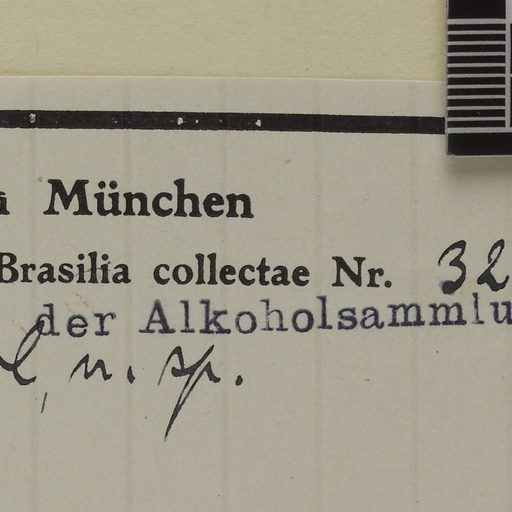 München
Brasilia collectae Nr. 32
der Alkoholsammlu
n. sp.